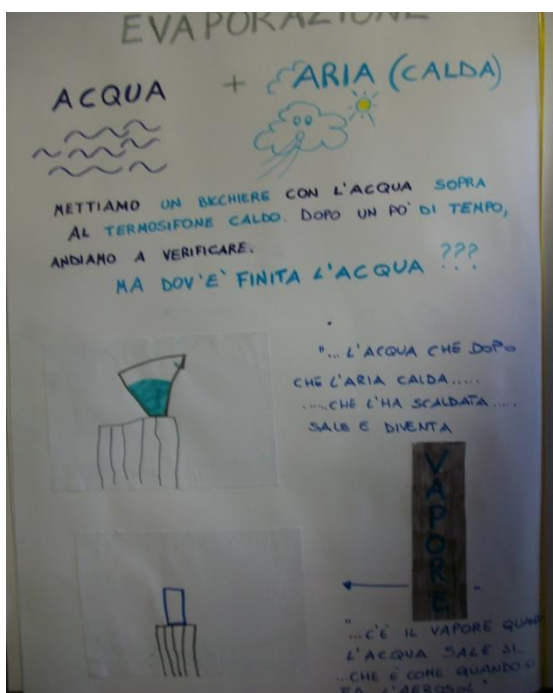 EVAPORAZIONE
ACQUA + ARIA (CALDA)
METTIAMO UN BICCHIERE CON L'ACQUA SOPRA
AL TERMOSIFONE CALDO. DOPO UN PO' DI TEMPO,
ANDIAMO A VERIFICARE.
MA DOV'E' FINITA L'ACQUA ???
"... L'ACQUA CHE DOPO
CHE L'ARIA CALDA.....
.....CHE L'HA SCALDATA.....
SALE E DIVENTA
VAPORE"
"...C'È IL VAPORE QUANDO
L'ACQUA SALE SI...
...CHE È COME QUANDO SI
FA L'AEROSOL"